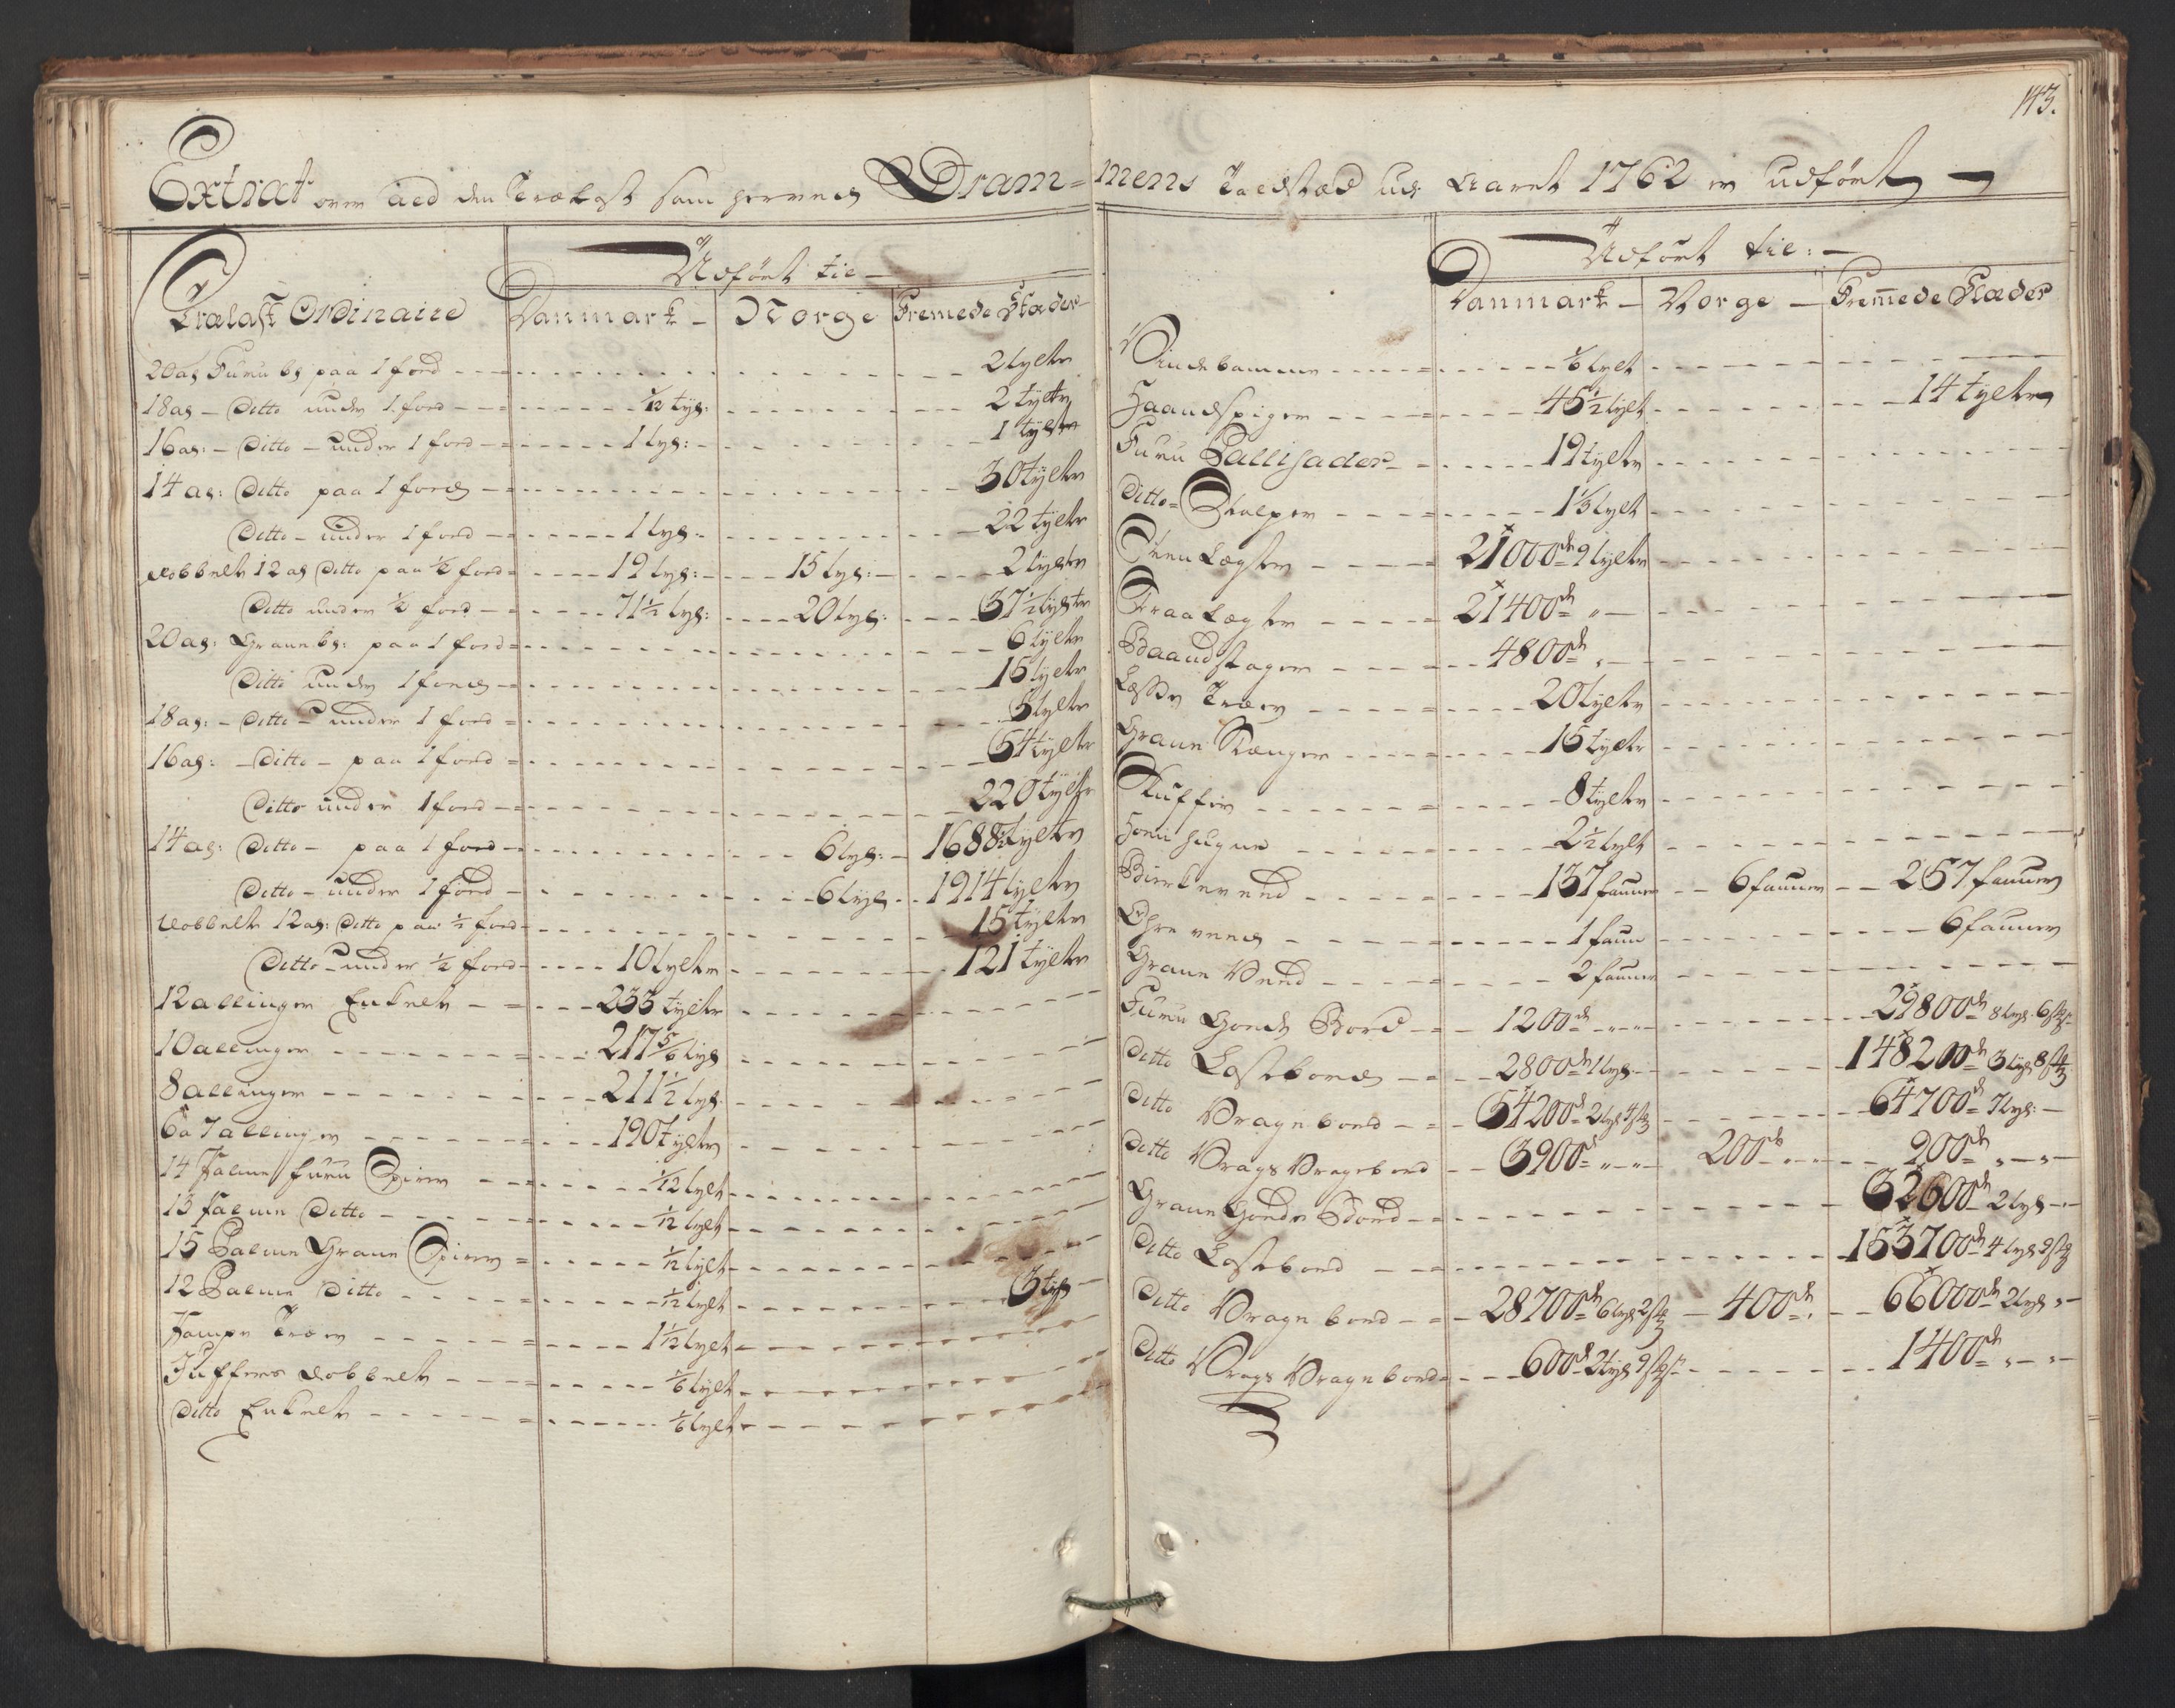 143.
Extract over aed den Trælast som herved Dram=mens Toedstæd udj Aaret 1762 er udført
Udført tie
Trælast Ordinaire Danmark Norge Fremede Stæder
20 al Furu bs paa 1 foed 2 tylter
18 al Ditto under 1 foed 1/12 tyl: 2 tylter
16 al: Ditto under 1 foed 1 tyl: 1 tylter
14 al: Ditto paa 1 foed 30 tylter
Ditto under 1 foed 1 tyl: 22 tylter
dobbelte 12 al Ditto paa ½ foed 19 tyl: 15 tyl: 2 tylter
Ditto under ½ foed 71½ tyl: 20 tyl: 37½ tylter
20 al: Grane bs: paa 1 foed 6 tylter
Ditto under 1 foed 15 tylter
18 al: Ditto under 1 foed 5 tylter
16 al: Ditto paa 1 foed 54 tylter
Ditto under 1 foed 220 tylter
14 al: Ditto paa 1 foed 6 tyl: 1688½ tylter
Ditto under 1 foed 6 tyl 1914 tylter
dobbelte 12 al: Ditto paa ½ foed 15 tylter
Ditto under ½ foed 10 tylter 121 tylter
12 allinger Enkelte 233 tylter
10 allinger 217 5/6 tyl
8 allinger 211½ tyl
6 a 7 allinger 190 tylter
14 Palme furu Spirer 1/12 tylt
13 Palme Ditto 1/12 tylt
15 Palme Grane Spirer 1/12 tylt
12 Palme Ditto 1/12 tylt 3 tyl
Pompe Træer 1 1/12 tylt
Juffers dobbelte 5/6 tylt
Ditto Enkelte 1/6 tylt
Udført til:
Danmark Norge Fremmede Stæder
Vindebomme 1/6 tylt
Haandspiger 45½ tylt 14 tylter
Furu Pallisader 19 tylter
Ditto Stolper 1⅓ tylt
Steen Lægter 21000de 9 tylter
Straa Lægter 21400de
Baandstager 4800de
Lædse Træer 20 tylter
Grane Stænger 15 tylter
Kuffer 8 tylter
2½ tylt
Birkeveed 137 fauner 6 fauner 257 fauner
Ohre veed 1 faun 6 fauner
Grane Veed 2 fauner
Furu Goede Bord 1200de 29800de 8 tyl 6 stk
Ditto Lastebord 2800de 1 tyl 148200de 3 tyl 8 stk
Ditto Vragebord 54200de 2 tyl 4 stk 64700de 7 tyl:
Ditto Vrags Vragebord 3900de 200de 900de
Grane Goede Bord 32600de 2 tyl
Ditto Lastebord 153700de 4 tyl 9 stk
Ditto Vragebord 28700de 6 tyl 2 stk 400de 66000de 2 tyl
Ditto Vrags Vragebord 600de 2 tyl 9 stk 1400de